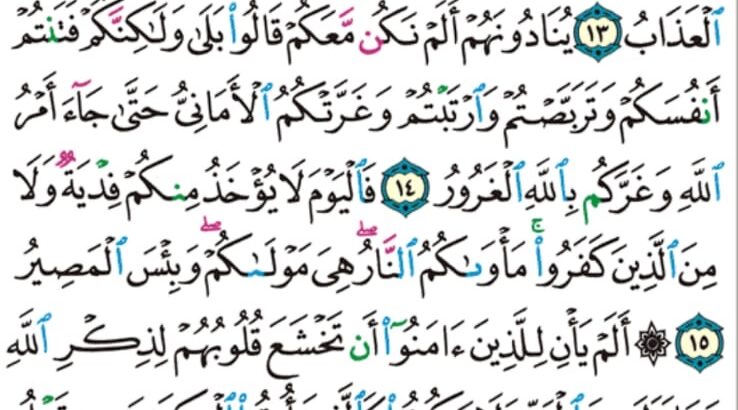 ٱلْعَذَابُ ١٣ يُنَادُونَهُمْ أَلَمْ نَكُن مَّعَكُمْ قَالُوا۟ بَلَىٰ وَلَـٰكِنَّكُمْ فَتَنتُمْ
أَنفُسَكُمْ وَتَرَبَّصْتُمْ وَٱرْتَبْتُمْ وَغَرَّتْكُمُ ٱلْأَمَانِىُّ حَتَّىٰ جَآءَ أَمْرُ
ٱللَّهِ وَغَرَّكُم بِٱللَّهِ ٱلْغَرُورُ ١٤ فَٱلْيَوْمَ لَا يُؤْخَذُ مِنكُمْ فِدْيَةٌ وَلَا
مِنَ ٱلَّذِينَ كَفَرُوا۟ ۚ مَأْوَىٰكُمُ ٱلنَّارُ ۖ هِىَ مَوْلَىٰكُمْ ۖ وَبِئْسَ ٱلْمَصِيرُ
١٥ ۞ أَلَمْ يَأْنِ لِلَّذِينَ ءَامَنُوٓا۟ أَن تَخْشَعَ قُلُوبُهُمْ لِذِكْرِ ٱللَّهِ